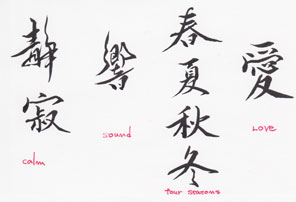 靜寂
calm
響
sound
春夏秋冬
four seasons
愛
Love